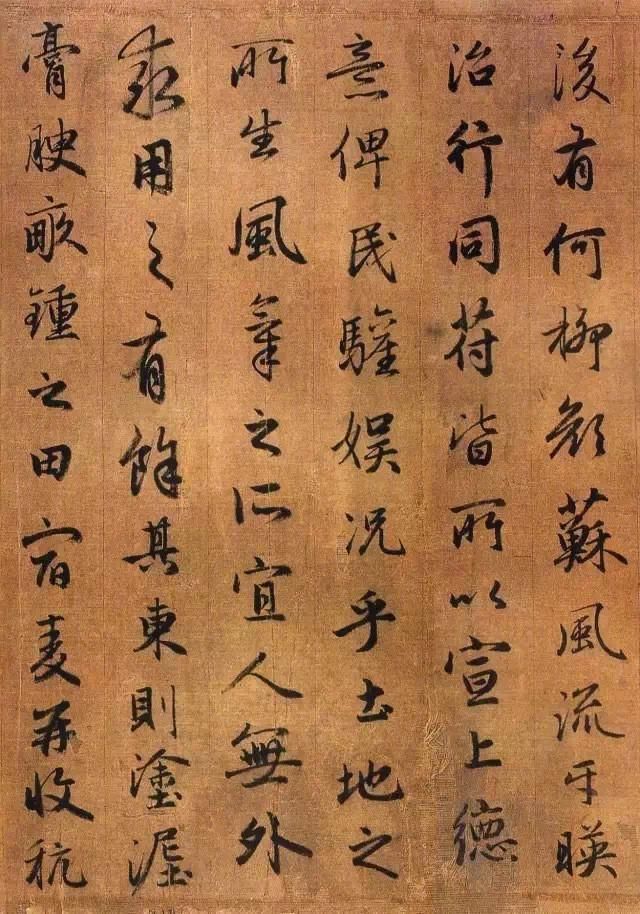 後有何柳顏蘇風流乎暎
治行同苻皆所以宣上德
意俾民驩娱況乎土地之
所生風氣之所宜人無外
求用之有餘其東則塗泥
膏腴畝鍾之田宿麦并收秔